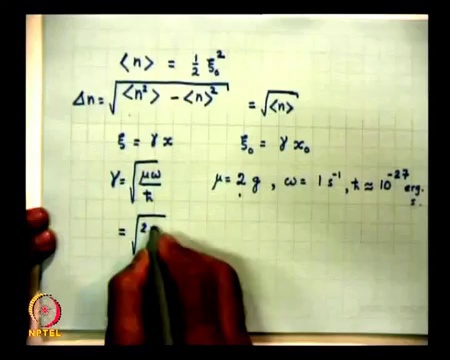 ⟨n⟩ = 1/2 ξ₀²
Δn = √(⟨n²⟩ − ⟨n⟩²) = √⟨n⟩
ξ = γ x ξ₀ = γ x₀
γ = √(μω/ħ) μ = 2 g , ω = 1 s⁻¹ , ħ ≈ 10⁻²⁷ erg.s.
= √2
NPTEL